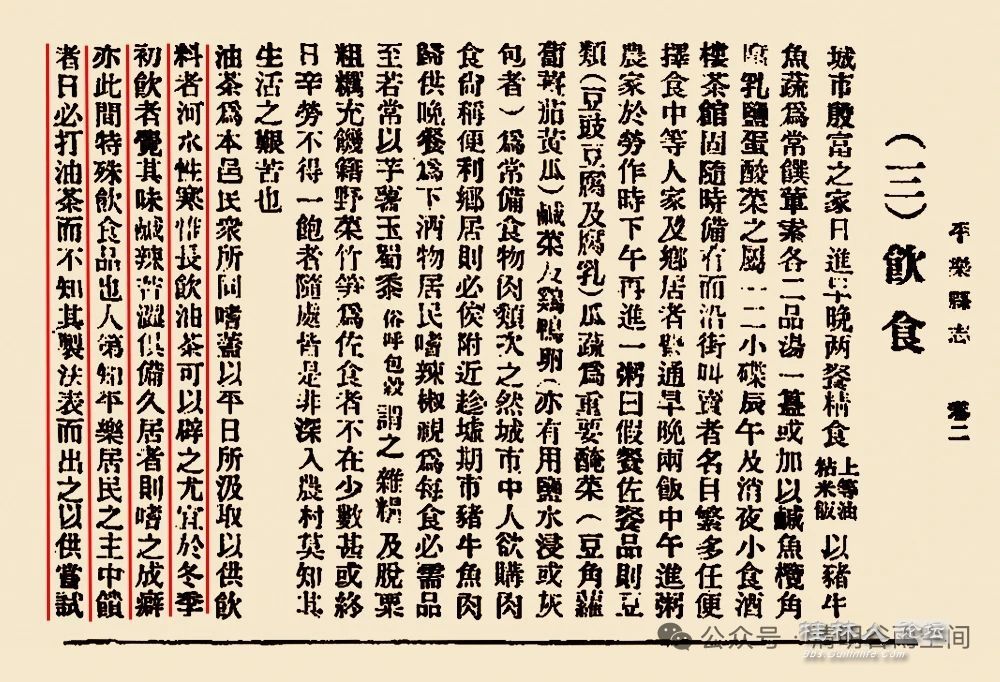 平樂縣志 卷二
(三)飲食
城市殷富之家日進早晚两餐精食上等油粘米飯以豬牛
魚蔬爲常饌葷素各二品湯一簋或加以鹹魚欖角
腐乳鹽蛋酸菜之屬一二小碟辰午及消夜小食酒
樓茶館固隨時備有而沿街叫賣者名目繁多任便
擇食中等人家及鄉居者通早晚兩飯中午進粥
農家於勞作時下午再進一粥曰假餐佐餐品則豆
類(豆豉豆腐及腐乳)瓜蔬爲重要醃菜(豆角蘿
蔔蕎茄黄瓜)鹹菜及鷄鴨卵(亦有用鹽水浸或灰
包者)爲常備食物肉類次之然城市中人欲購肉
食尙稱便利鄉居則必俟附近趁墟期市豬牛魚肉
歸供晚餐爲下酒物居民嗜辣椒視爲每食必需品
至若常以芋薯玉蜀黍俗呼包穀謂之雜粮及脫粟
粗糲充饑籍野菜竹筍爲佐食者不在少數甚或終
日辛勞不得一飽者隨處皆是非深入農村莫知其
生活之艱苦也
油茶爲本邑民衆所同嗜蓋以平日所汲取以供飲
料者河水性寒惟長飲油茶可以辟之尤宜於冬季
初飲者覺其味鹹辣苦澀俱備久居者則嗜之成癖
亦此間特殊飲食品也人第知平樂居民之主中饋
者日必打油茶而不知其製法表而出之以供嘗試
桂林人论坛
公众号 · 清明谷雨空间